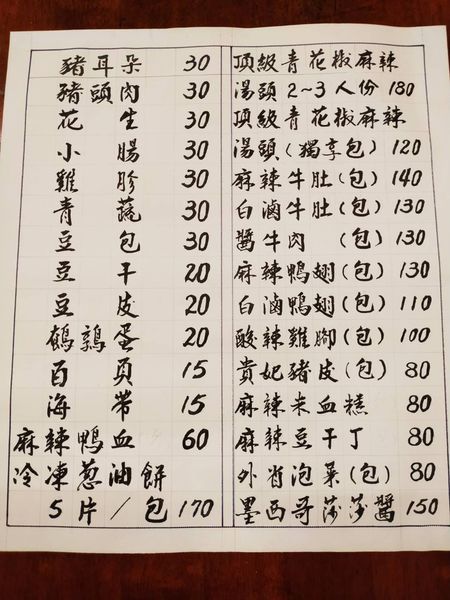 豬耳朵 30
豬頭肉 30
花生 30
小腸 30
雞胗 30
青蔬 30
豆包 30
豆干 20
豆皮 20
鵪鶉蛋 20
百頁 15
海帶 15
麻辣鴨血 60
冷凍蔥油餅
5片/包 170
頂級青花椒麻辣
湯頭2~3人份 180
頂級青花椒麻辣
湯頭(獨享包) 120
麻辣牛肚(包) 140
白滷牛肚(包) 130
醬牛肉 (包) 130
麻辣鴨翅(包) 130
白滷鴨翅(包) 110
酸辣雞腳(包) 100
貴妃豬皮(包) 80
麻辣米血糕 80
麻辣豆干丁 80
外省泡菜(包) 80
墨西哥莎莎醬 150